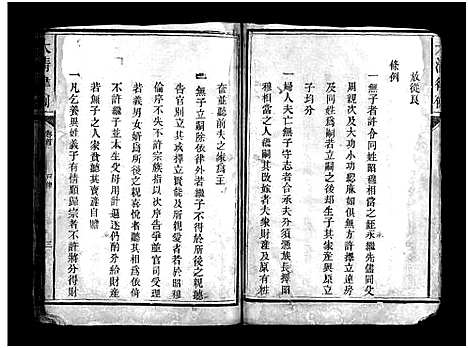 放從良
條例
一無子者許令同姓昭穆相當之姪承繼先儘同父
周親次及大功小功緦麻如俱無方許擇立遠房
及同姓爲嗣若立嗣之後却生子其家產與原立
子均分
一婦人夫亡無子守志者合承夫分須憑族長擇昭
穆相當之人繼嗣其改嫁者夫家財產及原有粧
奩並聽前夫之家爲主
一無子立嗣除依律外若繼子不得於所後之親聽
告官別立其或擇立賢能及所親愛者若於昭穆
倫序不失不許宗族指以次序告爭並官司受理
若義男女婿爲所後之親喜悅者聽其相爲依倚
不許繼子並本生父母用計逼逐仍酌分給財產
若無子之人家貧聽其賣產自贍
一凡乞養異姓義子有情願歸宗者不許將分得財
大清律例
卷首
戶律